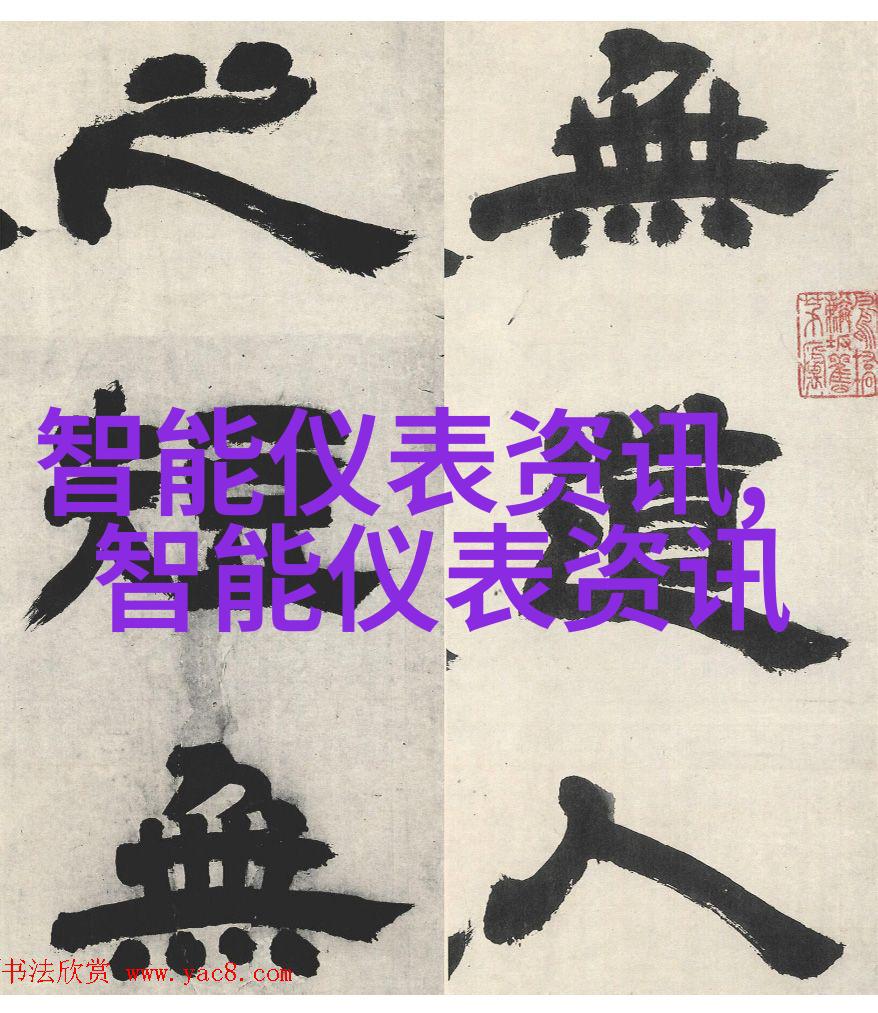 無道人
之短無
智能仪表资讯,
智能仪表资讯
书法欣赏 www.yac8.com